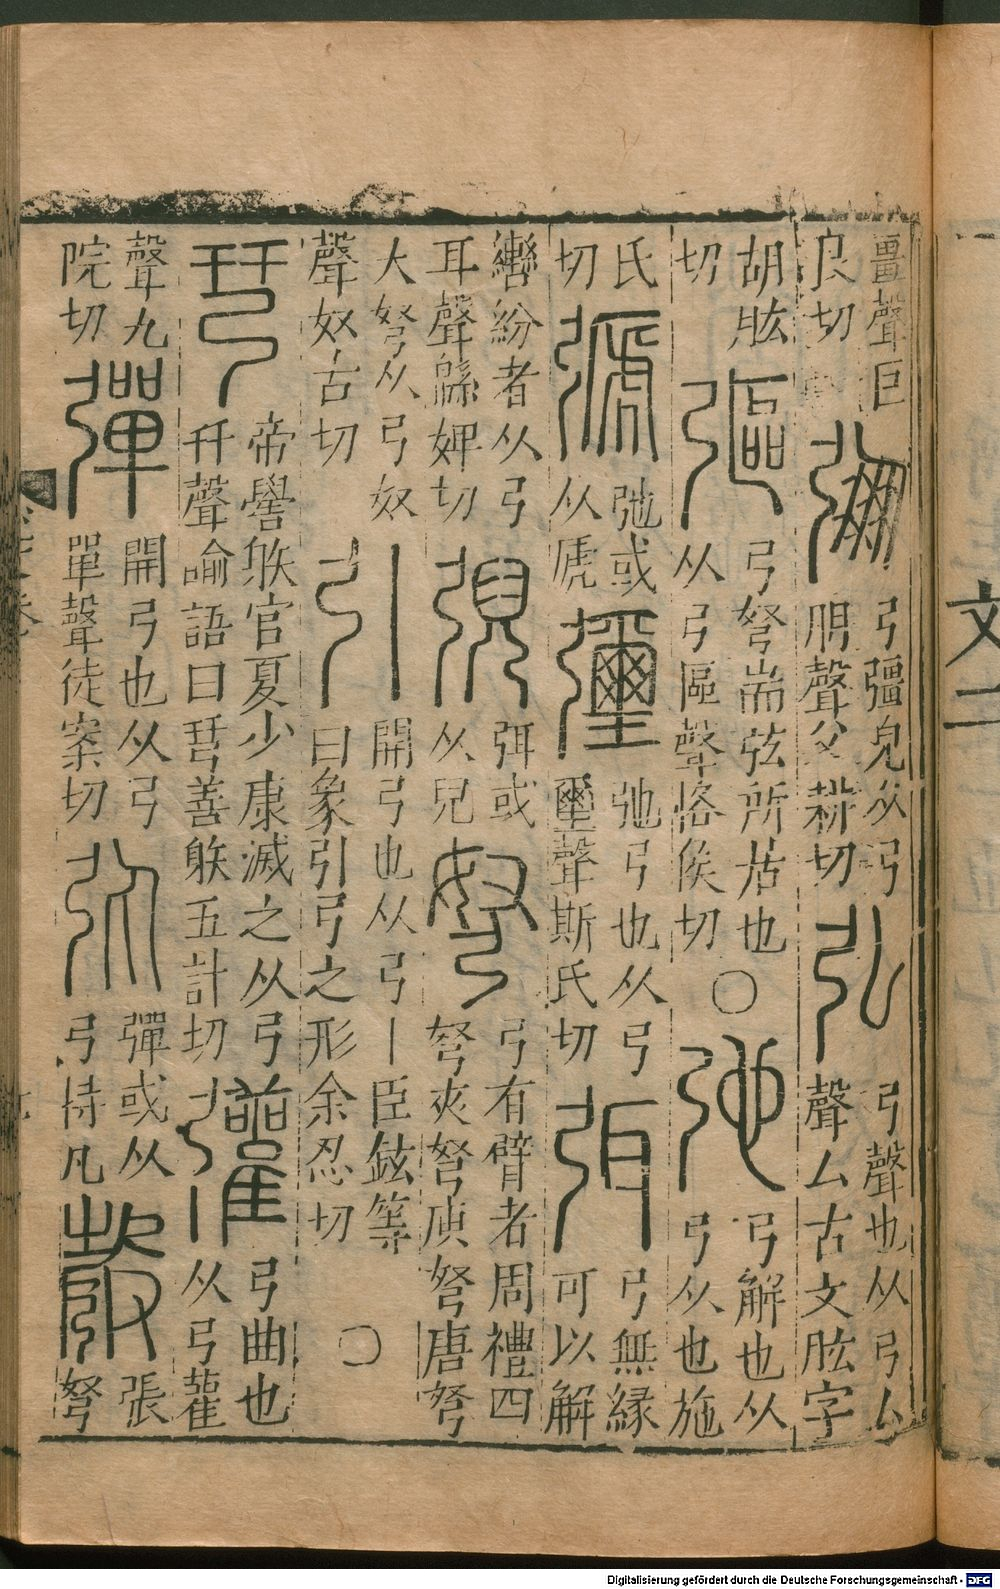 畺聲巨良切弸弓彊皃从弓朋聲父耕切弘弓聲也从弓厶聲厶古文肱字
胡肱切彄弓弩耑弦所居也从弓區聲恪侯切○弛弓解也从弓从也施
氏切𢐋弛或从虒彌弛弓也从弓璽聲斯氏切弭弓無緣可以解
轡紛者从弓耳聲緜婢切弭或从兒弩弓有臂者周禮四弩夾弩庾弩唐弩
大弩从弓奴聲奴古切引開弓也从弓丨臣鉉等曰象引弓之形余忍切○
𢏗帝嚳䠶官夏少康滅之从弓幵聲論語曰𢏗善䠶五計切𢑆弓曲也从弓雚
聲九院切彈開弓也从弓單聲徒案切彈或从弓持凡彀張弩
文二
Digitalisierung gefördert durch die Deutsche Forschungsgemeinschaft - DFG